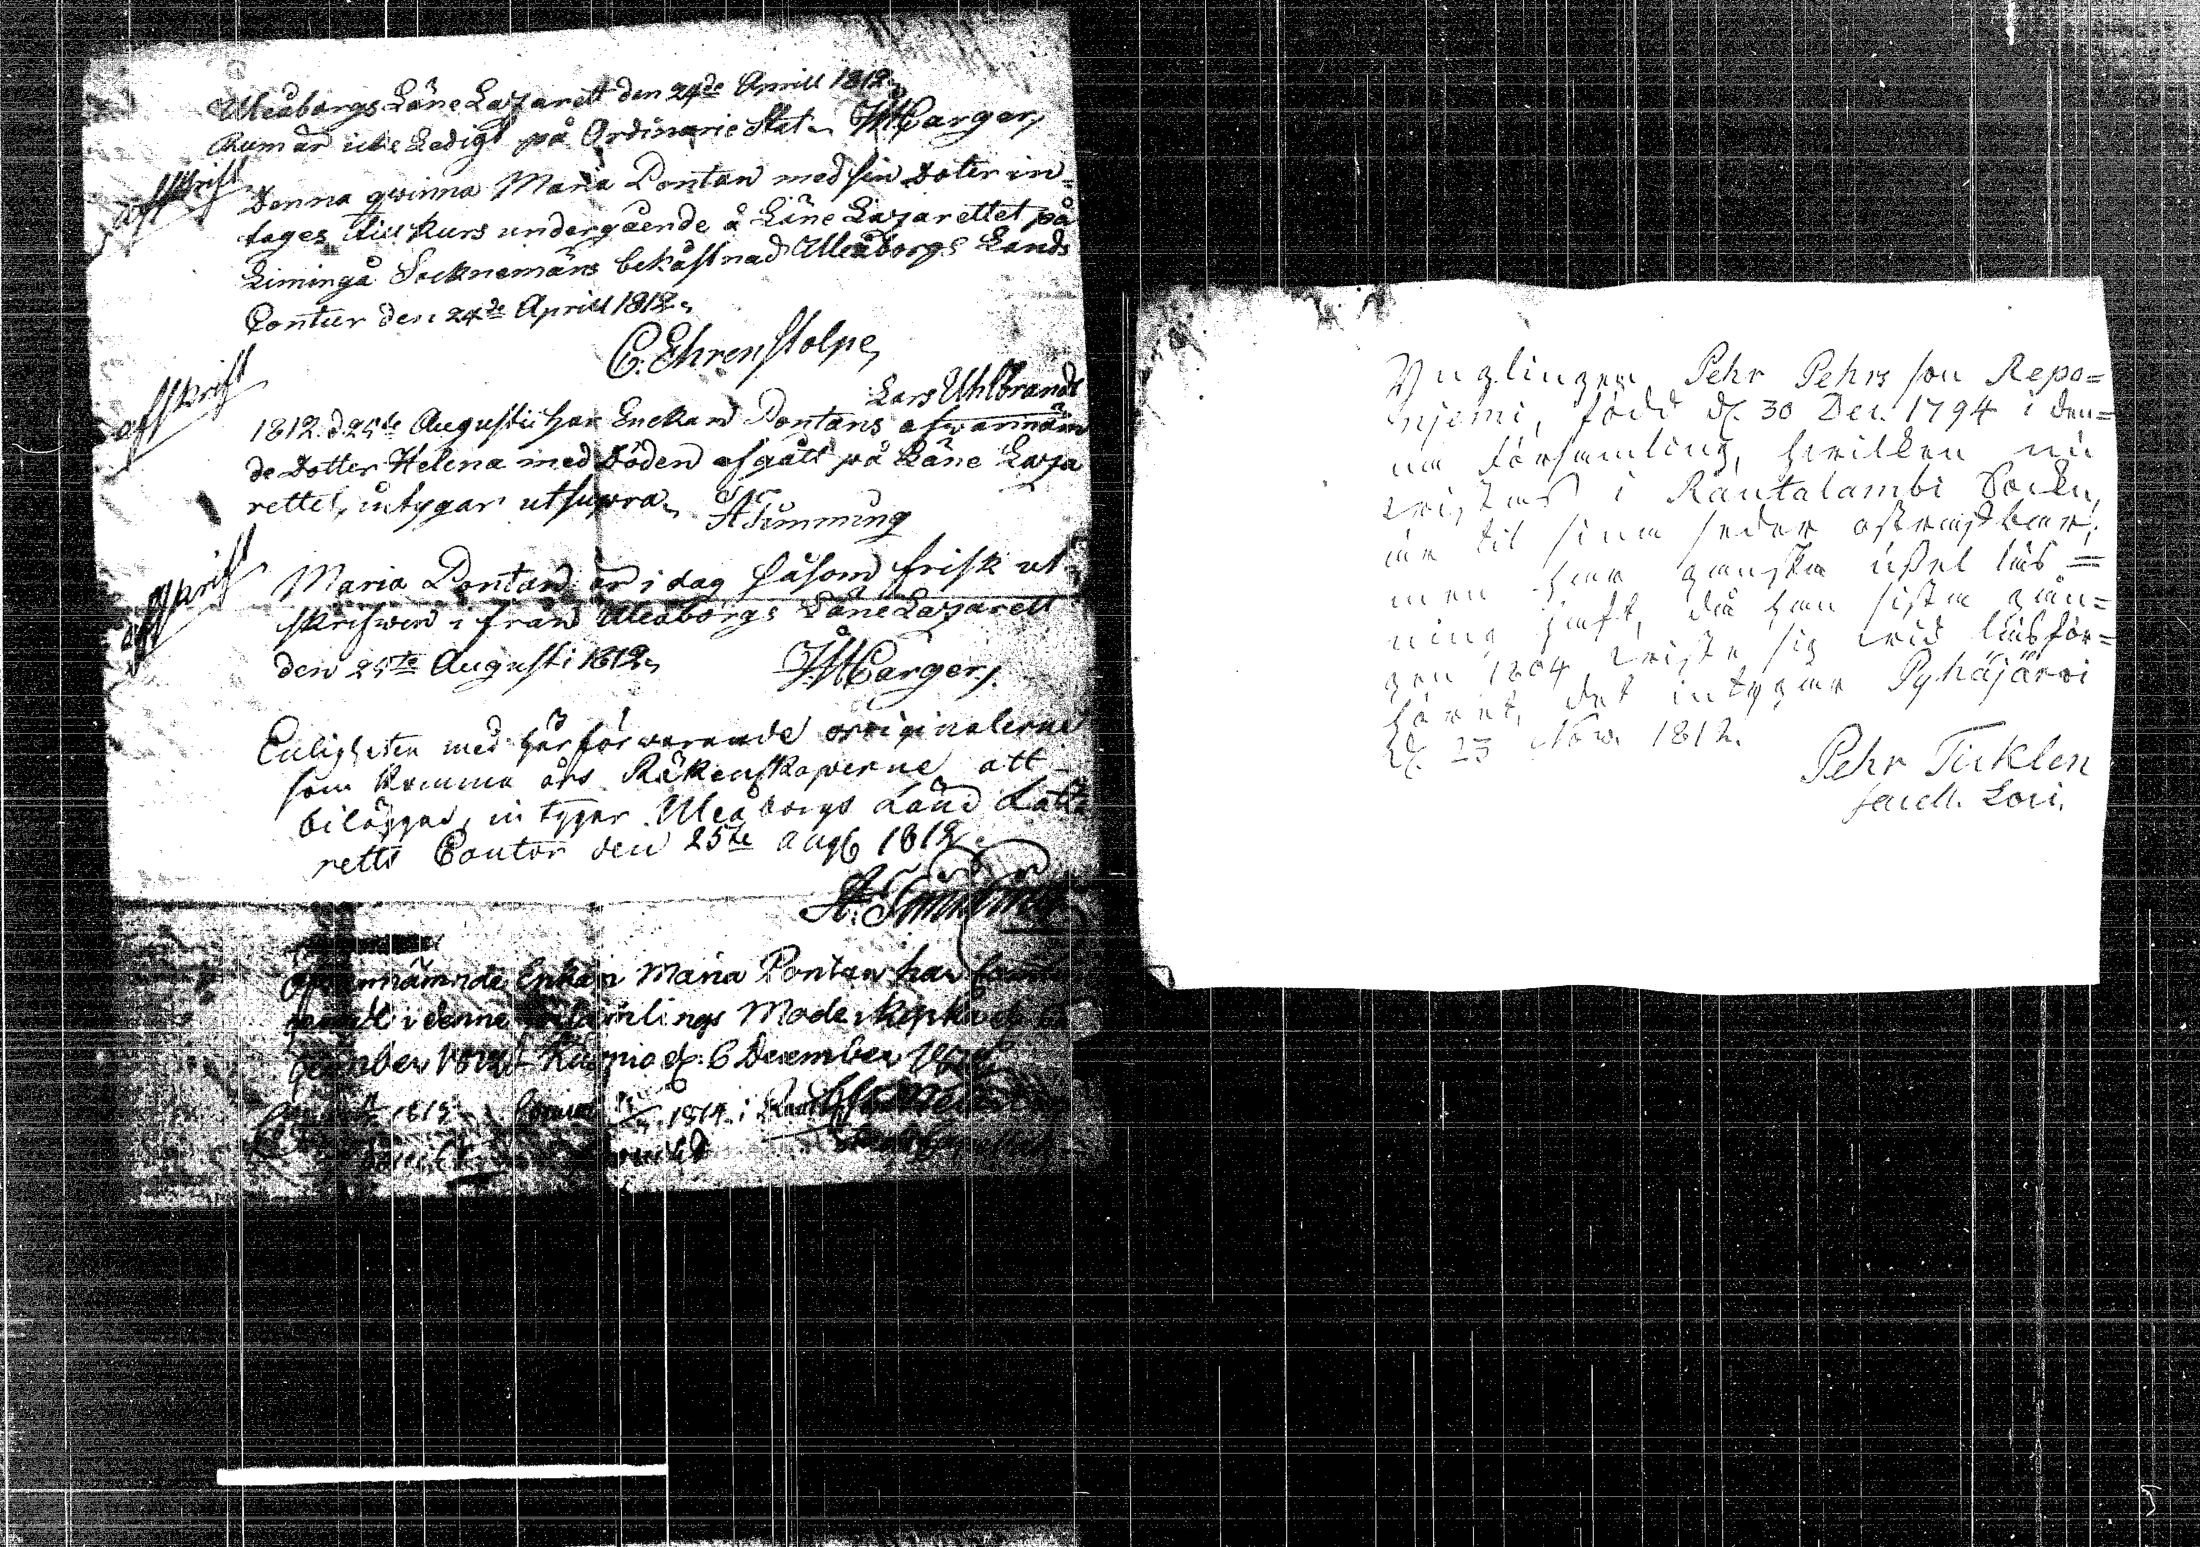 Uleåborgs Läne Lazarett den 24de Aprill 1812.
Rum är icke Ledigt på Ordinarie Stat. Carger,
Afskrift
Denna qvinna Maria Pontan med sin Doter in-
tages till kurs undergående å Läne Lazarettet på
Limingå Socknemäns bekåstnad Uleåborgs Lands
Contur den 24de Aprill 1812.
C. Ehrenstolpe,
Lars Uhlbrandt
afskrift
1812. d 25te Augusti har Enckan Pontans ofwannäm
de Dotter Helena med Döden afgått på Läne Laza
rettet, intygar utsupra,
afskrift
Maria Pontan är i dag såsom frisk ut-
skrifwen ifrån Uleåborgs Läne Lazarett
den 25te Augusti 1812. Carger,
Enligheten med härförwarande originalerne
som komma års Räkenskaperne att
biläggas, intygar Uleåborgs Länd Laza
retts Contor den 25te aug 1812.
ofwannämnde Enkan Maria Pontan har
i denne Församlings Moderkyrka
d. 6 December
1814. i
Ynglingen Pehr Pehrsson Repo=
njemi, född d. 30 Dec. 1794 i den=
na församling, hvilken nu
vistas i Rautalambi Sockn,
är til sina seder ostraffbar;
men har ganska usel läs=
ning haft, då han sista gån=
gen 1804 viste sig vid läsför=
höret, det intygar Pyhäjärvi
d. 23 Nov. 1812.
Pehr Ticklen